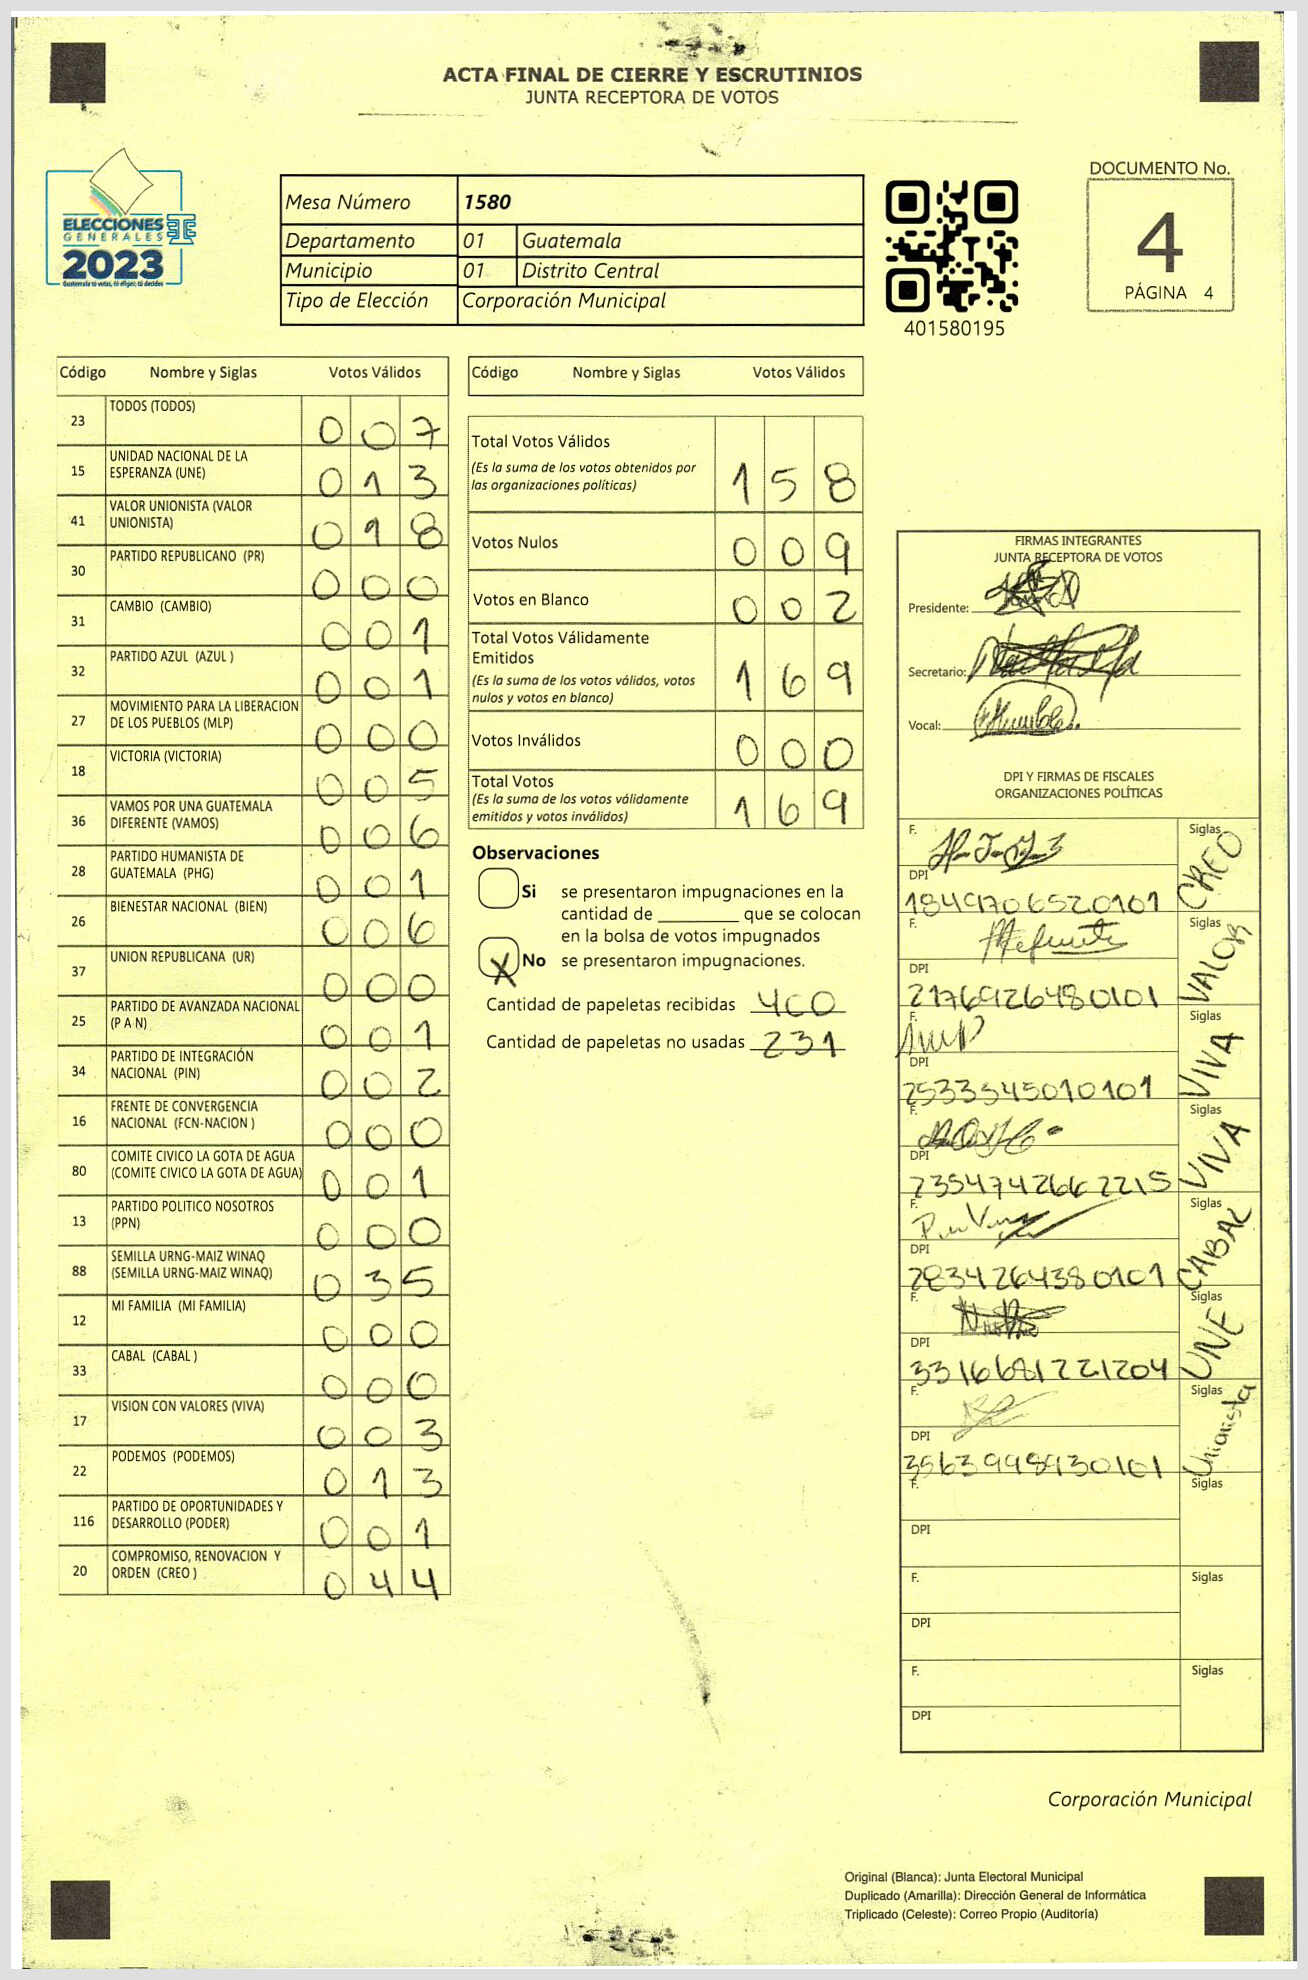 ACTA FINAL DE CIERRE Y ESCRUTINIOS
JUNTA RECEPTORA DE VOTOS
ELECCIONES
GENERALES
2023
Mesa Número 1580
Departamento 01 Guatemala
Municipio 01 Distrito Central
Tipo de Elección Corporación Municipal
401580195
DOCUMENTO No.
4
PÁGINA 4
Código Nombre y Siglas Votos Válidos
23 TODOS (TODOS) 007
15 UNIDAD NACIONAL DE LA
ESPERANZA (UNE) 013
41 VALOR UNIONISTA (VALOR
UNIONISTA) 018
30 PARTIDO REPUBLICANO (PR) 000
31 CAMBIO (CAMBIO) 001
32 PARTIDO AZUL (AZUL ) 001
27 MOVIMIENTO PARA LA LIBERACION
DE LOS PUEBLOS (MLP) 000
18 VICTORIA (VICTORIA) 005
36 VAMOS POR UNA GUATEMALA
DIFERENTE (VAMOS) 006
28 PARTIDO HUMANISTA DE
GUATEMALA (PHG) 001
26 BIENESTAR NACIONAL (BIEN) 006
37 UNION REPUBLICANA (UR) 000
25 PARTIDO DE AVANZADA NACIONAL
(P A N) 001
34 PARTIDO DE INTEGRACIÓN
NACIONAL (PIN) 002
16 FRENTE DE CONVERGENCIA
NACIONAL (FCN-NACION ) 000
80 COMITE CIVICO LA GOTA DE AGUA
(COMITE CIVICO LA GOTA DE AGUA) 001
13 PARTIDO POLITICO NOSOTROS
(PPN) 000
88 SEMILLA URNG-MAIZ WINAQ
(SEMILLA URNG-MAIZ WINAQ) 035
12 MI FAMILIA (MI FAMILIA) 000
33 CABAL (CABAL ) 000
17 VISION CON VALORES (VIVA) 003
22 PODEMOS (PODEMOS) 013
116 PARTIDO DE OPORTUNIDADES Y
DESARROLLO (PODER) 001
20 COMPROMISO, RENOVACION Y
ORDEN (CREO ) 044
Código Nombre y Siglas Votos Válidos
Total Votos Válidos 158
(Es la suma de los votos obtenidos por
las organizaciones políticas)
Votos Nulos 009
Votos en Blanco 002
Total Votos Válidamente
Emitidos 169
(Es la suma de los votos válidos, votos
nulos y votos en blanco)
Votos Inválidos 000
Total Votos 169
(Es la suma de los votos válidamente
emitidos y votos inválidos)
Observaciones
Si se presentaron impugnaciones en la
cantidad de ________ que se colocan
en la bolsa de votos impugnados
X No se presentaron impugnaciones.
Cantidad de papeletas recibidas 400
Cantidad de papeletas no usadas 231
FIRMAS INTEGRANTES
JUNTA RECEPTORA DE VOTOS
Presidente:
Secretario:
Vocal:
DPI Y FIRMAS DE FISCALES
ORGANIZACIONES POLÍTICAS
F. Siglas CREO
DPI
1849706520101
F. Siglas VALOR
DPI
2176926480101
F. Siglas VIVA
DPI
2533345010101
F. Siglas VIVA
DPI
2354742662215
F. Siglas CABAL
DPI
2834264380101
F. Siglas UNE
DPI
3316681221204
F. Siglas Unionista
DPI
3563998930101
F. Siglas
DPI
F. Siglas
DPI
F. Siglas
DPI
Corporación Municipal
Original (Blanca): Junta Electoral Municipal
Duplicado (Amarilla): Dirección General de Informática
Triplicado (Celeste): Correo Propio (Auditoría)